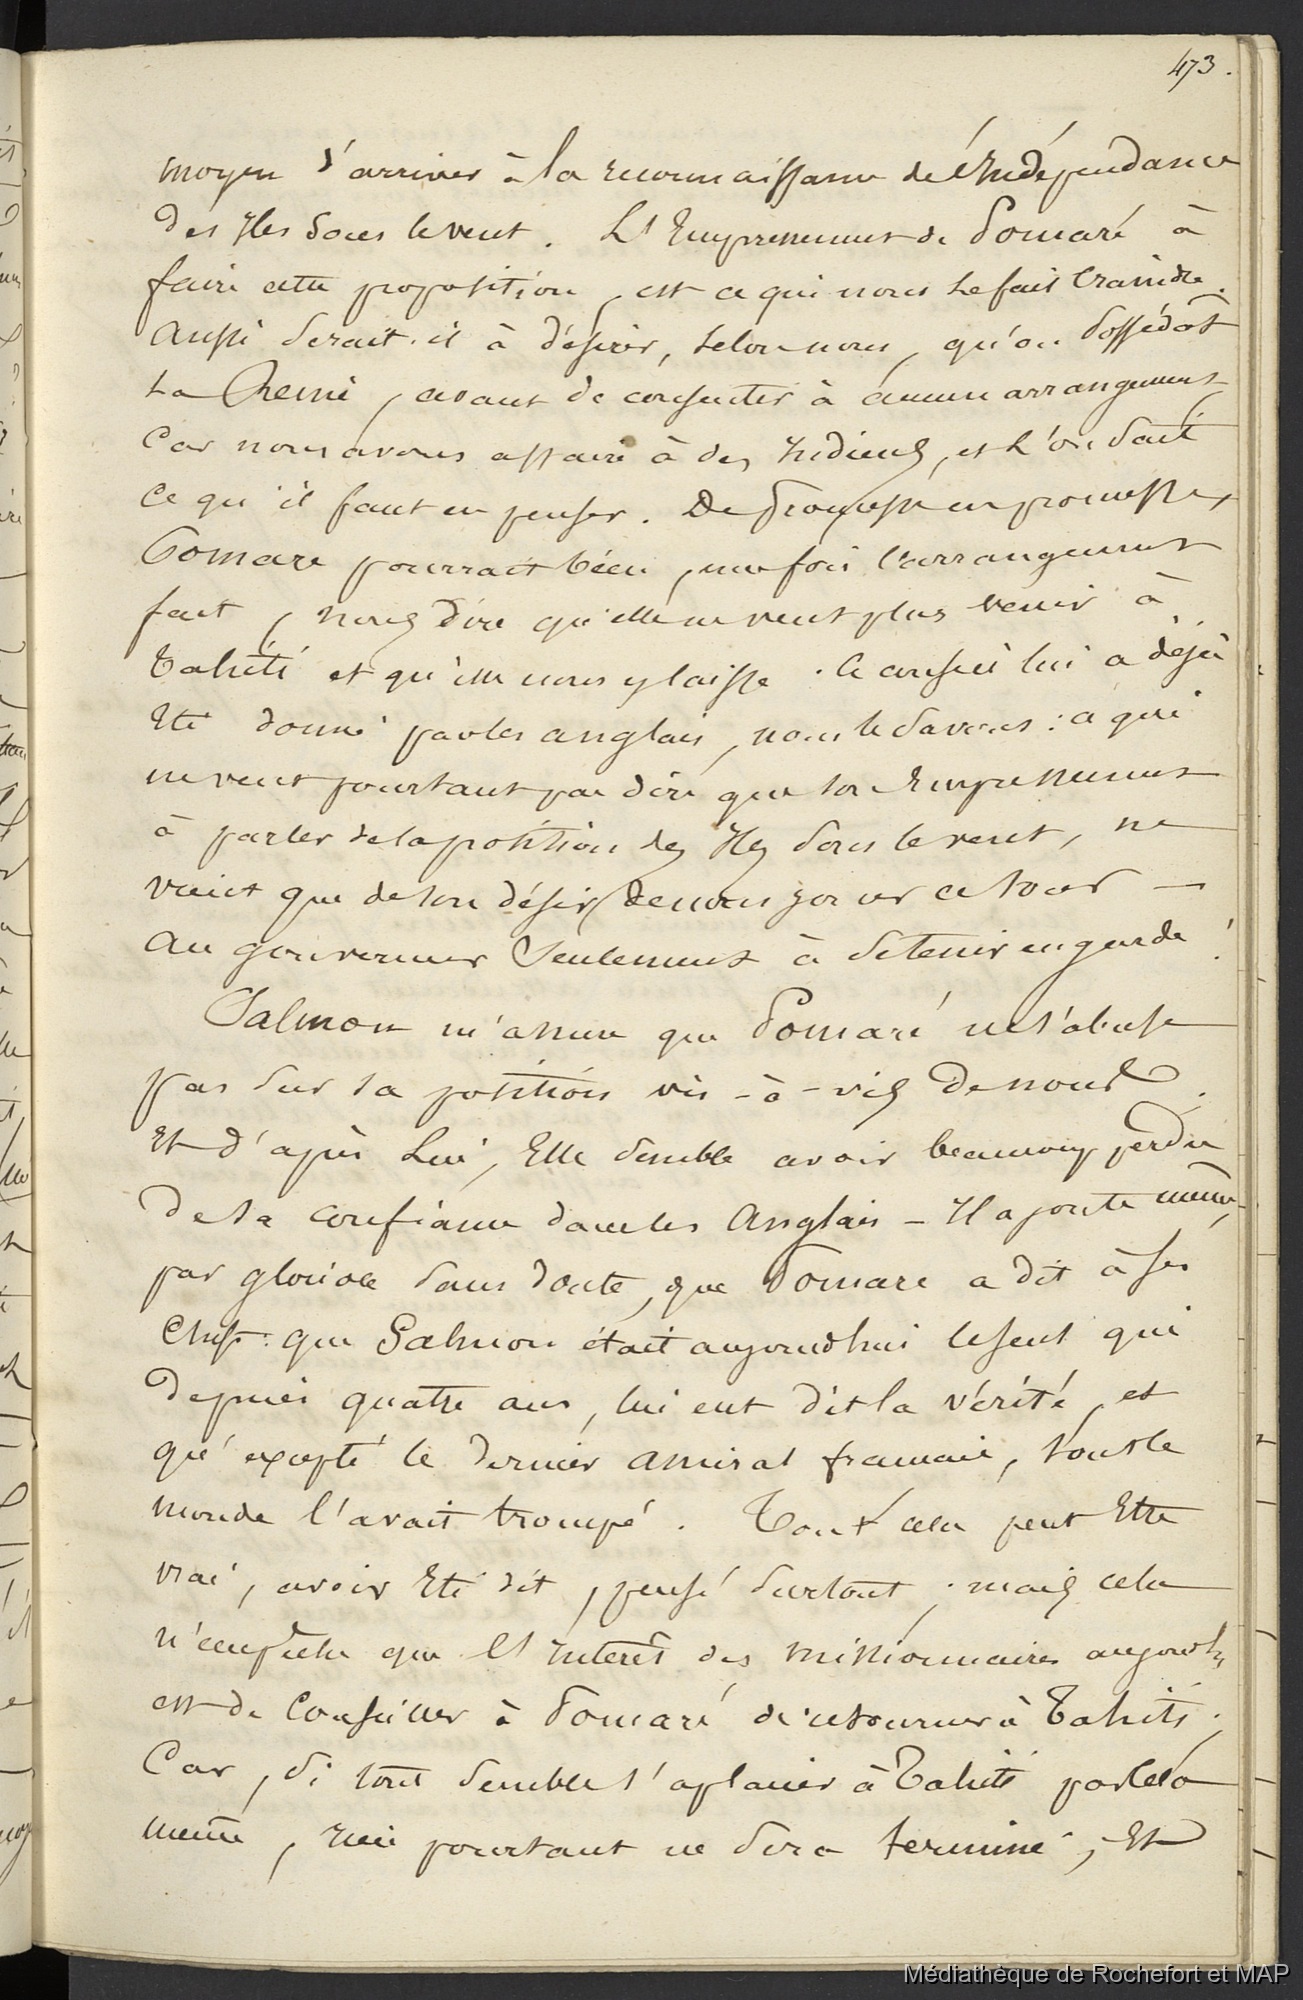 473.
moyen d'arriver à la reconnaissance de l'Indépendance
des Iles sous le vent. L'Empressement de Pomaré à
faire cette proposition, est ce qui nous le fait craindre.
Aussi serait-il à désirer, selon nous, qu'on possédât
la Reine, avant de consentir à aucun arrangement,
Car nous avons affaire à des Indiens, et l'on sait
ce qu'il faut en penser. De promesse en promesses,
Pomare pourrait bien, une fois l'arrangement
fait, nous dire qu'elle ne veut plus venir à
Tahiti et qu'elle nous y laisse. Ce conseil lui a déjà
Eté donné par les anglais, nous le savons : ce qui
ne veut pourtant pas dire que son Empressement
à parler de la position des Iles sous le vent, ne
vient que de son désir de nous jouer ce tour —
au gouverneur seulement à se tenir en garde !
Salmon m'assure que Pomaré ne s'abuse
pas sur sa position vis-à-vis de nous.
Et d'après Lui, Elle semble avoir beaucoup perdu
de sa confiance dans les Anglais — Il ajoute même,
par gloriole sans doute, que Pomare a dit à ses
Chefs : que Salmon était aujourd'hui le seul qui
depuis quatre ans, lui eut dit la vérité, et
qu'excepté le dernier amiral francais, tout le
monde l'avait trompé. Tout cela peut Etre
vrai, avoir Eté dit, pensé surtout ; mais cela
n'empêche que l'Interêt des missionnaires aujourd'h.
est de Conseiller à Pomaré de retourner à Tahiti ;
Car, si tout semble s'aplanir à Tahiti par cela
meme, rien pourtant ne sera terminé ; Et
Médiathèque de Rochefort et MAP